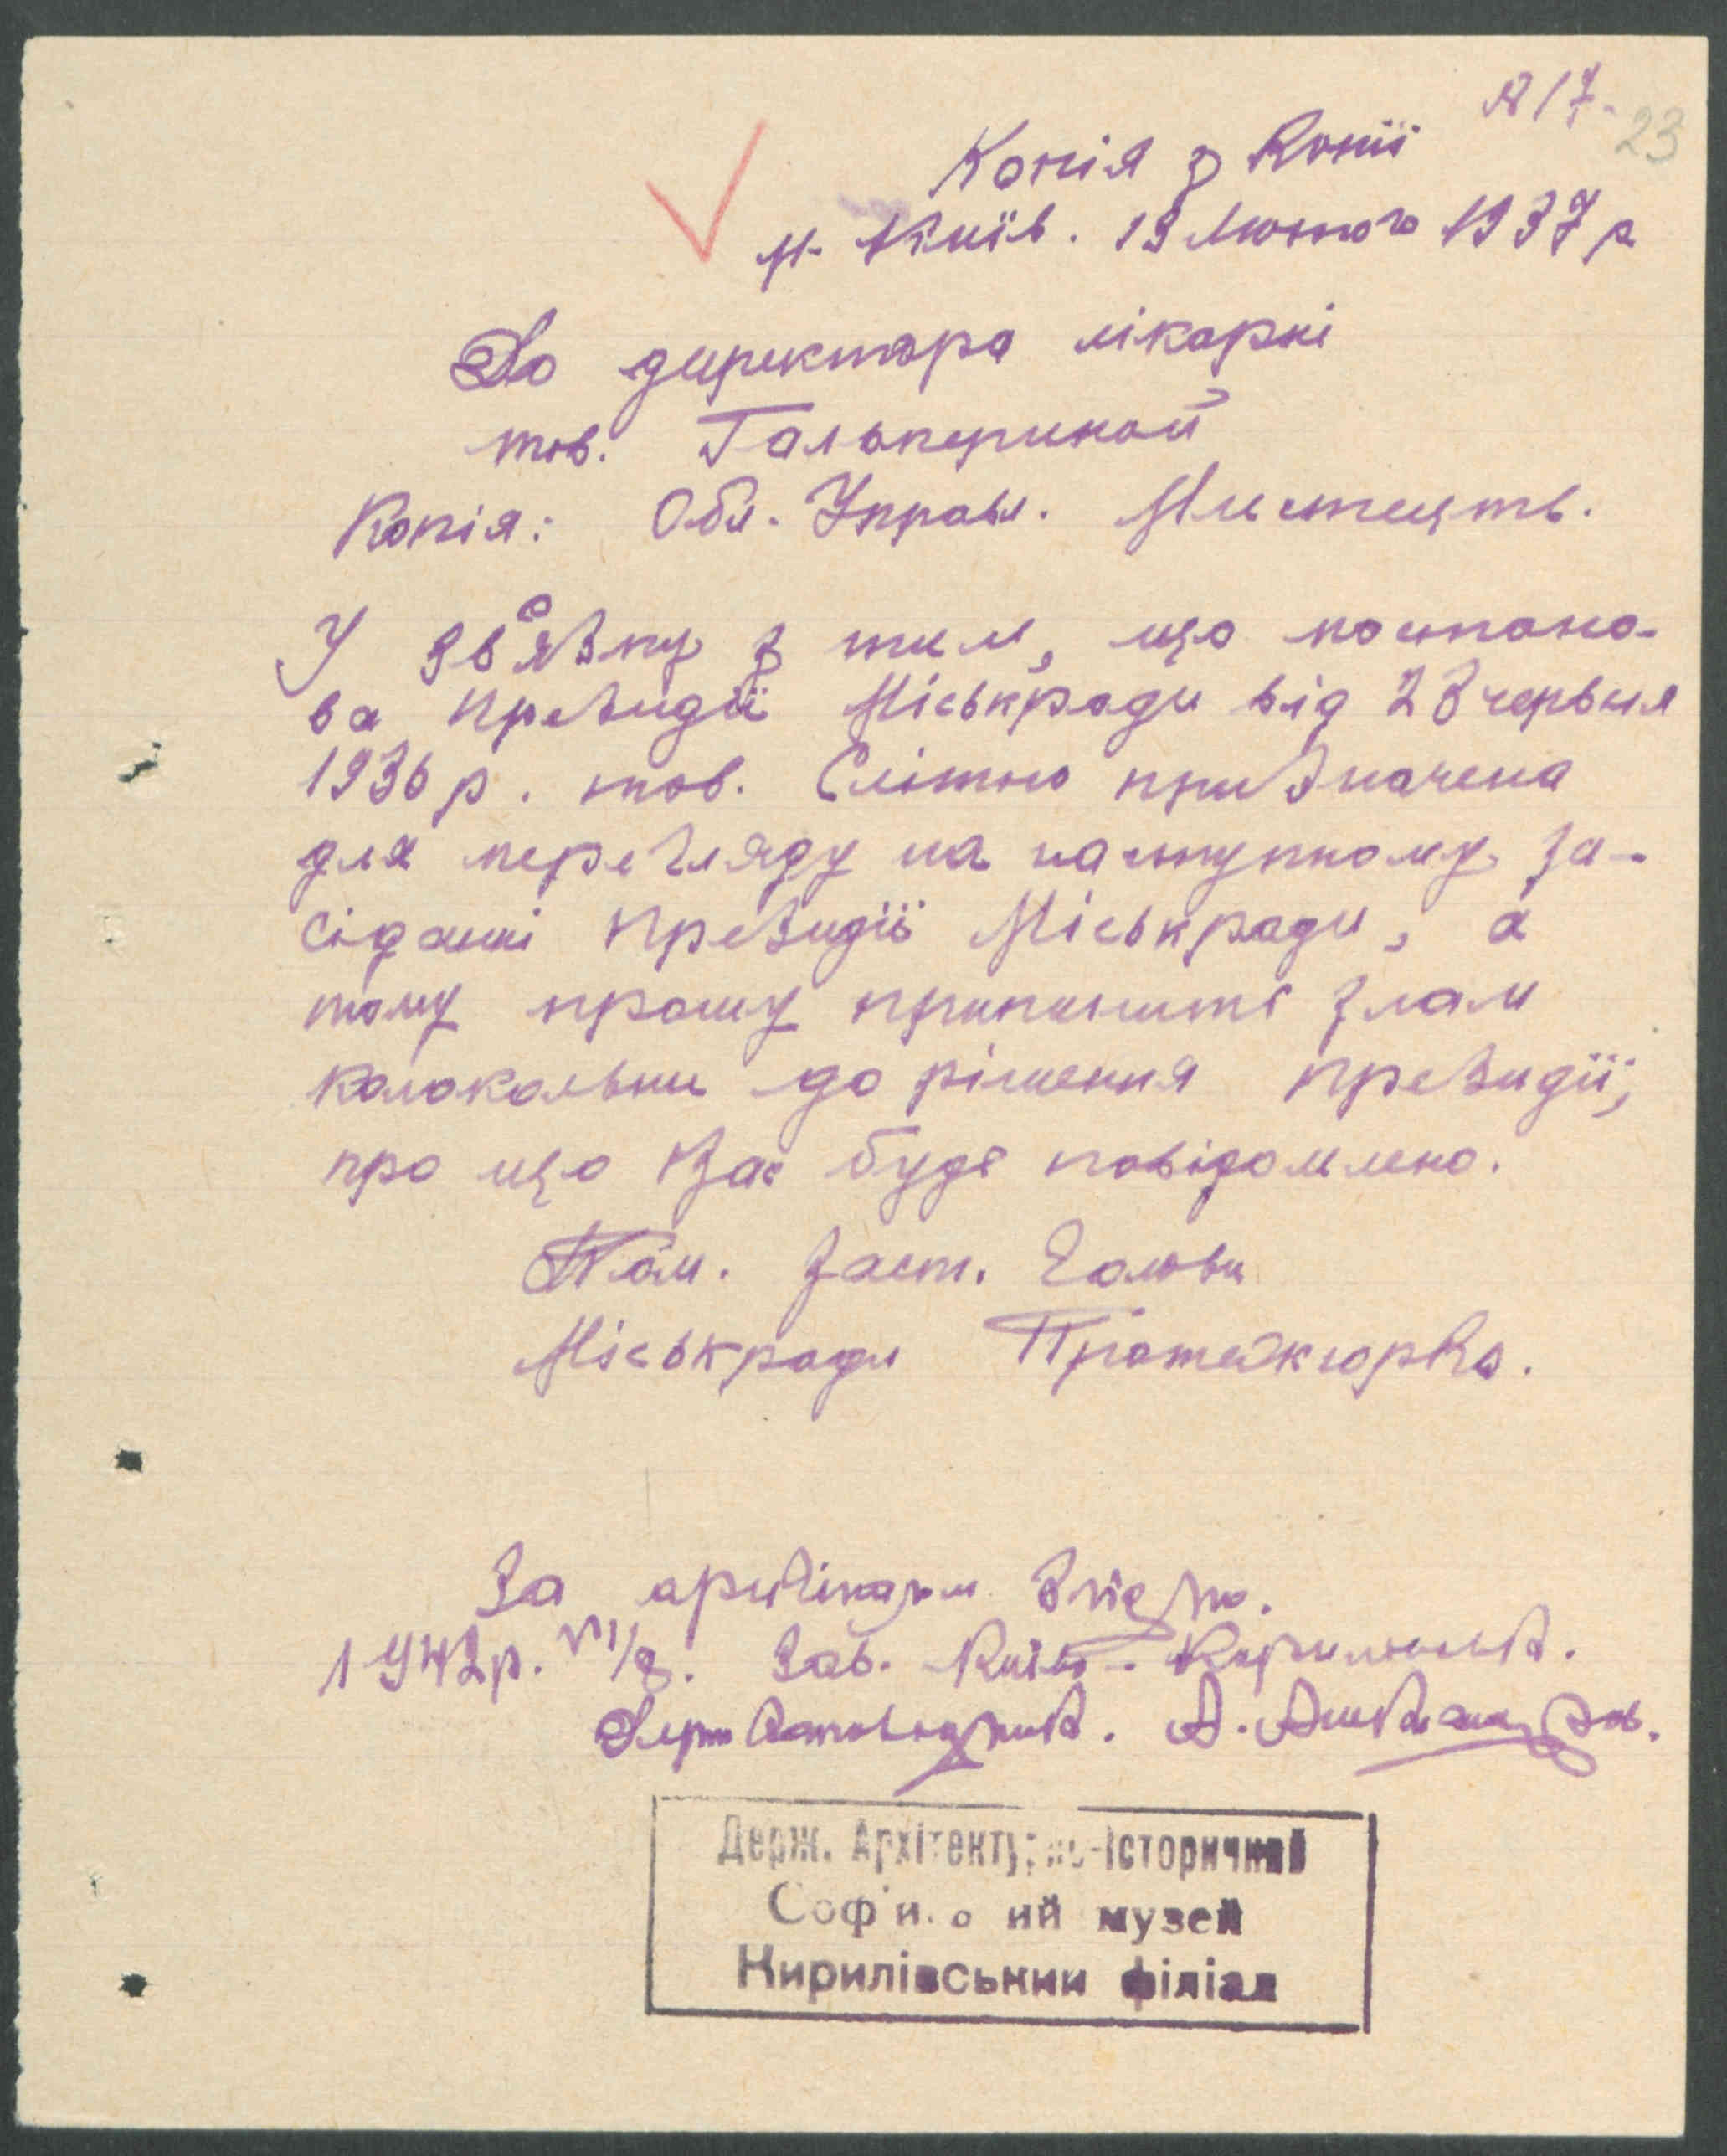 № 17.
23
Копія з Копії
м. Київ. 19 Лютого 1937 р
До директора лікарні
тов. Гальпериной
Копія: Обл. Управл. Мистецтв.
У зв'язку з тим, що постано-
ва Президії Міськради від 28 червня
1936 р. тов. призначена
для перегляду на наступному за-
сіданні Президії Міськради, а
тому прошу припинити злам
колокольни до рішення Президії,
про що Вас буде повідомлено.
Пом. Заст. Голови
Міськради
За згідно.
1942р. VI/8. Зав. Київ. Кирилівськ.
А.
Держ. Архітектурно-Історичний
Софійський музей
Кирилівський філіал